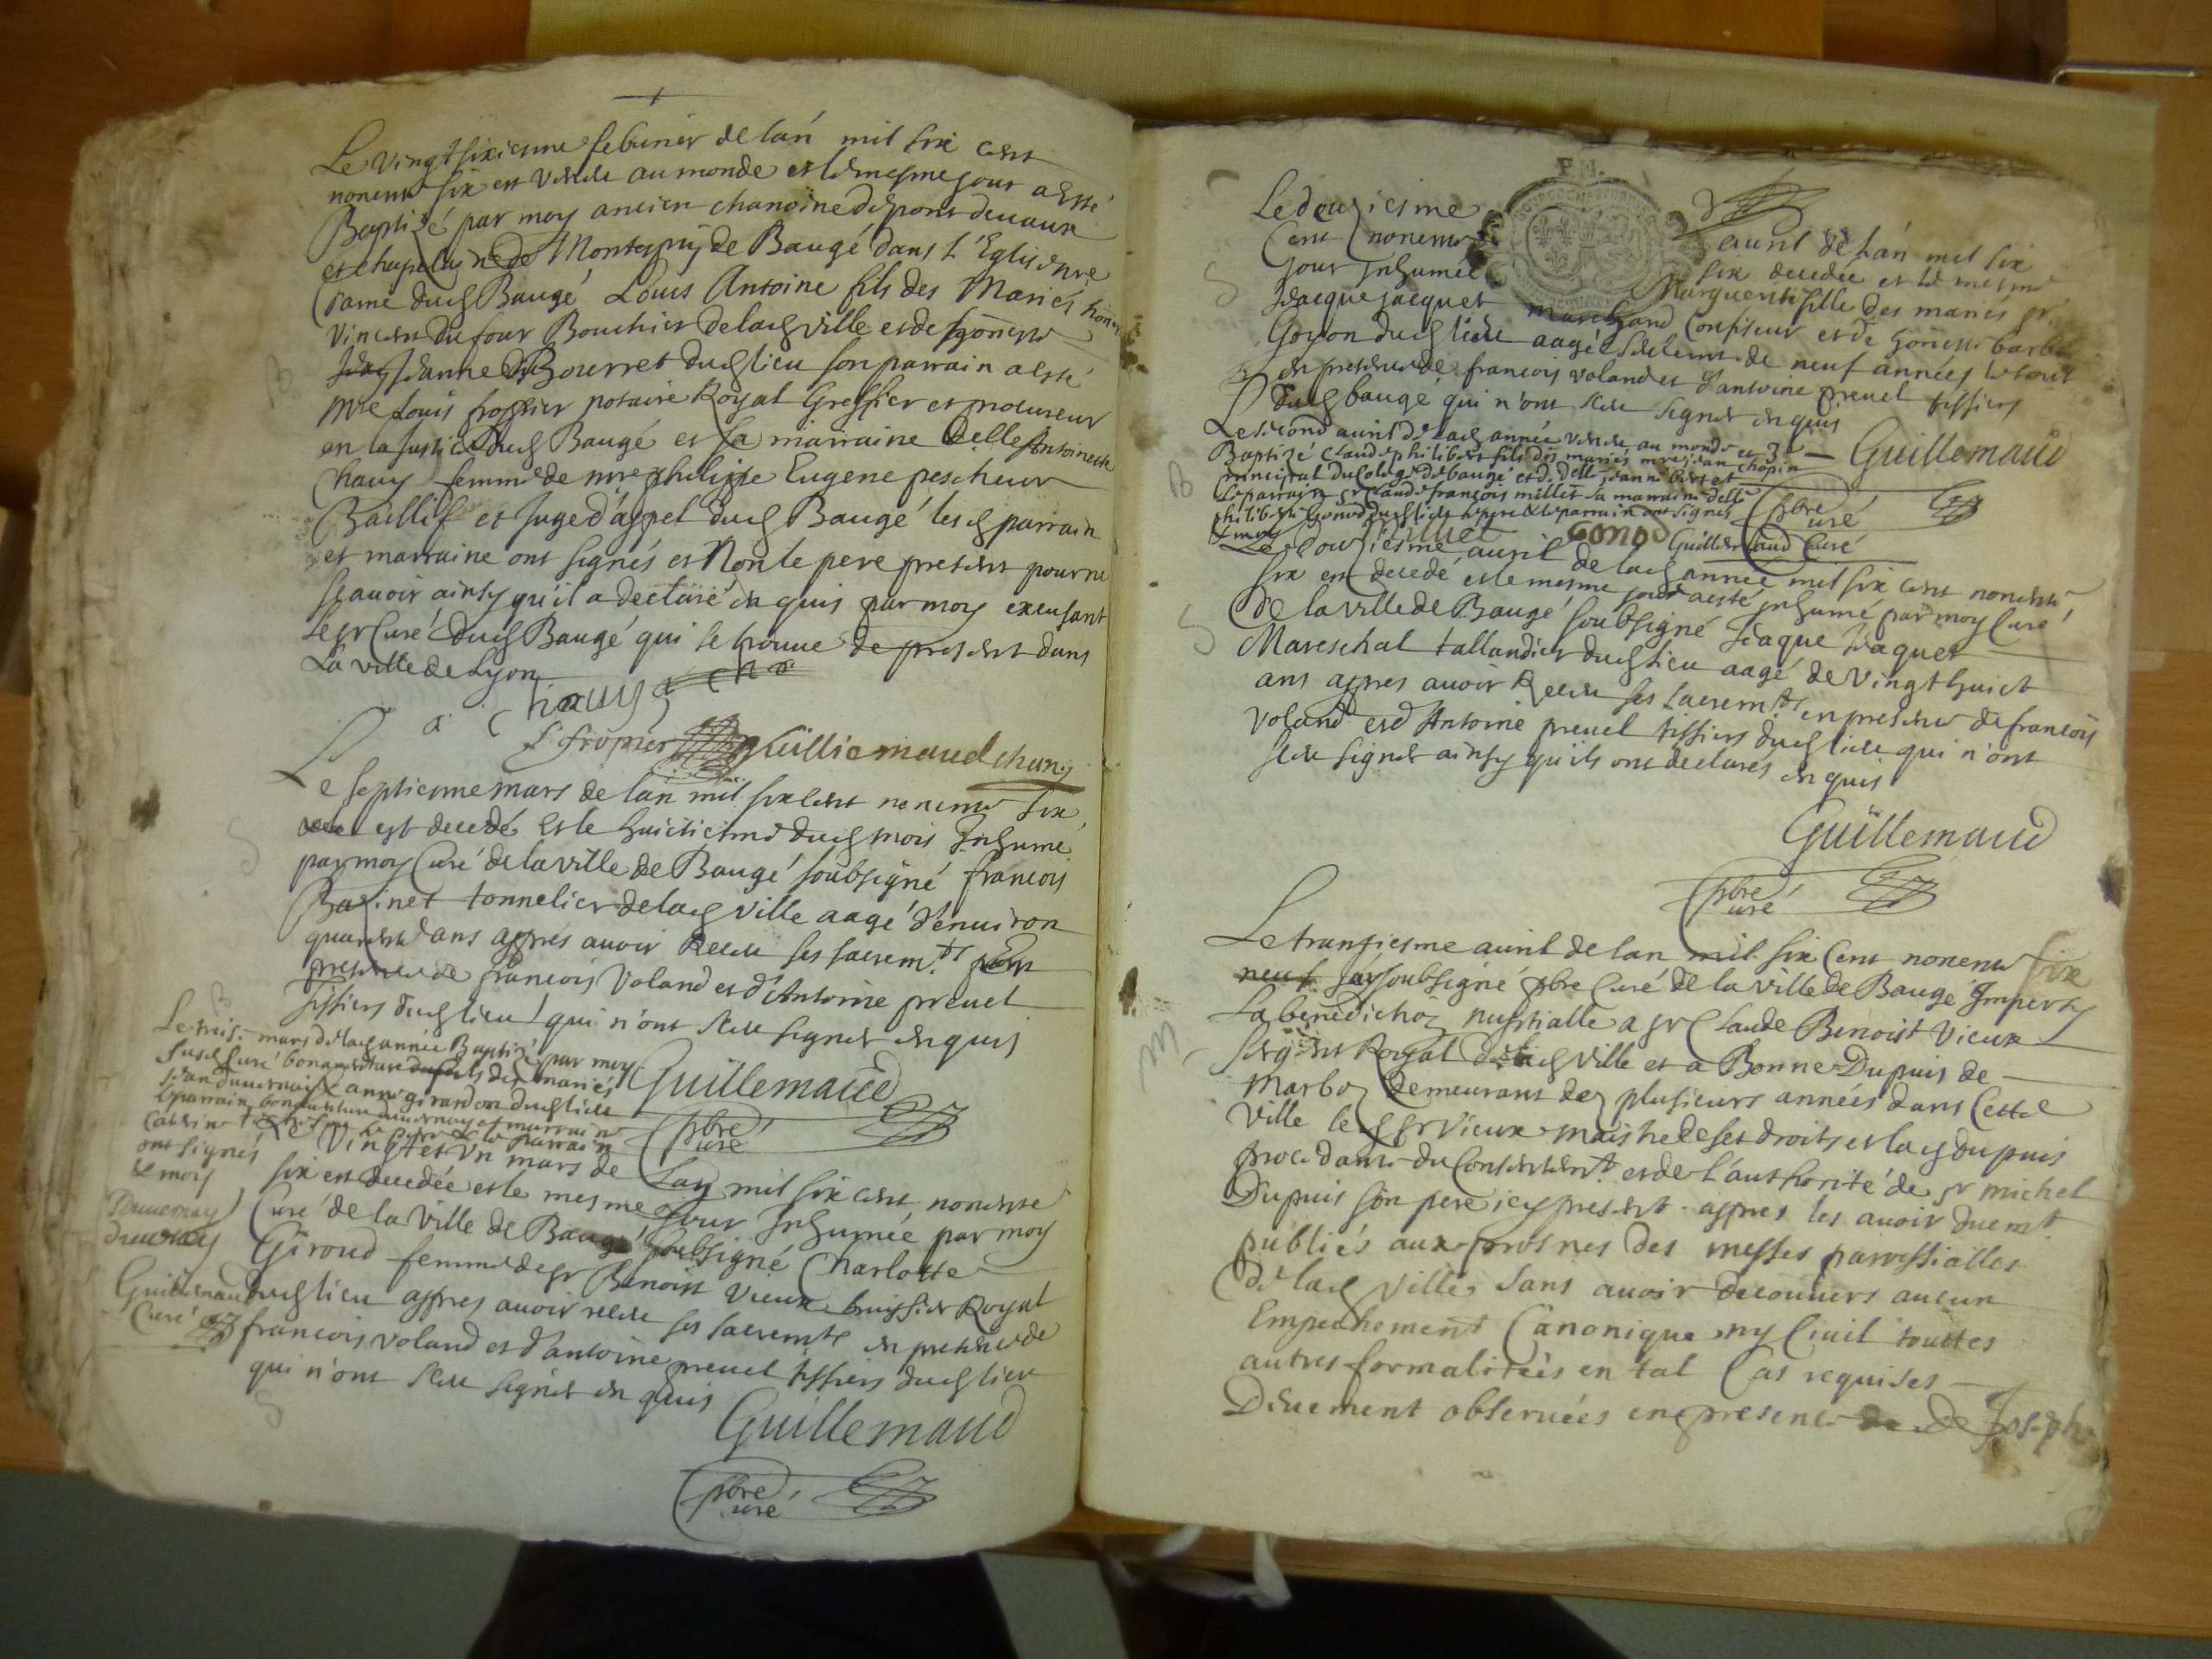 Le vingtsixiesme febvrier de lan mil six cent
nonente six est venu au monde et le mesme jour a esté
Baptizé par moy ancien chanoine de pont devaux
et chapelain de Montepin de Baugé dans l'Eglise nre
dame dud Baugé Louis Antoine fils des Mariés
Vincent dufour Bouchier de lad ville et de honneste
Jeanne Bourret dud lieu son parrain a esté
Mre Louis fropier notaire Royal Greffier et procureur
en la Justice dud Baugé et sa marraine delle Antoinette
Chaux femme de mre philippe Eugene pescheur
Baillif et Juge d'appel dud Baugé lesd parrain
et marraine ont signés et Non le pere present pour ne
scavoir ainsy qu'il a declaré enquis par moy excusant
le sr Curé dud Baugé qui se trouve de present dans
La ville de Lyon
a Chaux
L fropier Guilliemaud chan.
Le septiesme mars de lan mil six cent nonente six
est decedé et le huictiesme dud mois Inhumé
par moy Curé de la ville de Baugé soubsigné francois
Basinet tonnelier de lad ville aagé d'environ
quarente ans appres avoir Receu ses sacremts
presence de francois Voland et d'Antoine prevel
tissiers dud lieu qui n'ont sceu signer enquis
Guillemaud
pbre
Curé
Le trois. mars de lad année Baptizé par moy
susd Curé bonaventure fils des mariés
Jean duvernay et anne girardon dud lieu
le parrain bonaventure duvernay et marraine
le pere et le parrain
ont signés
et moy
Duvernay
duvernay
Guillemaud
Curé
Le Vingt et Un mars de Lan mil six cent nonente
six est decedée et le mesme jour Inhumée par moy
Curé de la Ville de Baugé soubsigné Charlotte
Giroud femme de sr Benoist Vieux huissier Royal
dud lieu appres avoir receu ses sacremts en presence de
francois voland et d'antoine prevel tissiers dud lieu
qui n'ont sceu signer enquis
Guillemaud
pbre
Curé
Le douziesme avril de lan mil six
Cent nonente six decedée et le mesme
Jour Inhumée Marguerite fille des mariés sr.
Jacque Jacquet marchand Confiseur et de honneste barbe
Goyon dud lieu aagée seulement de neuf années le tout
en presence de francois voland et d'antoine prevel tissiers
dud baugé qui n'ont sceu signer enquis
Guillemaud
pbre
Curé
Le second avril de lad année venu au monde et
Baptizé Claude philibert fils des mariés mre jean Chopin
principal du College de baugé et de delle jeanne
Le parrain sr Claude francois millet sa marraine delle
philiberte Gonod dud lieu le pere et le parrain ont signés
et moy Millet GONOD Guillemaud Curé
Le douziesme avril de lad année mil six cent nonente
six est decedé et le mesme jour a esté Inhumé par moy Curé
de la ville de Baugé soubsigné Jacque Jaquet
Mareschal tallandier dud lieu aagé de Vingt huict
ans appres avoir Receu ses sacremts en presence de francois
voland et d'Antoine prevel tissiers dud lieu qui n'ont
sceu signer ainsy qu'ils ont declarés enquis
Guillemaud
pbre
Curé
Le trantiesme avril de lan mil six Cent nonente six
neuf Jay soubsigné pbre Curé de la Ville de Baugé Imperty
La benediction nuptialle a sr Claude Benoist Vieux
sergent Royal de lad ville et a Bonne Dupuis de
Marboz demeurant dez plusieurs années dans Cette
Ville led sr Vieux maistre de ses droits et lad dupuis
procedant du Consentemt. et de l'authorité de sr michel
Dupuis son pere icy present. appres les avoir duemt.
publiés aux prosnes des messes paroissialles
de lad Ville, sans avoir decouvers aucun
Empechement Canonique ny Civil touttes
autres formalitées en tal Cas requises
Deuement observées en presence de Joseph